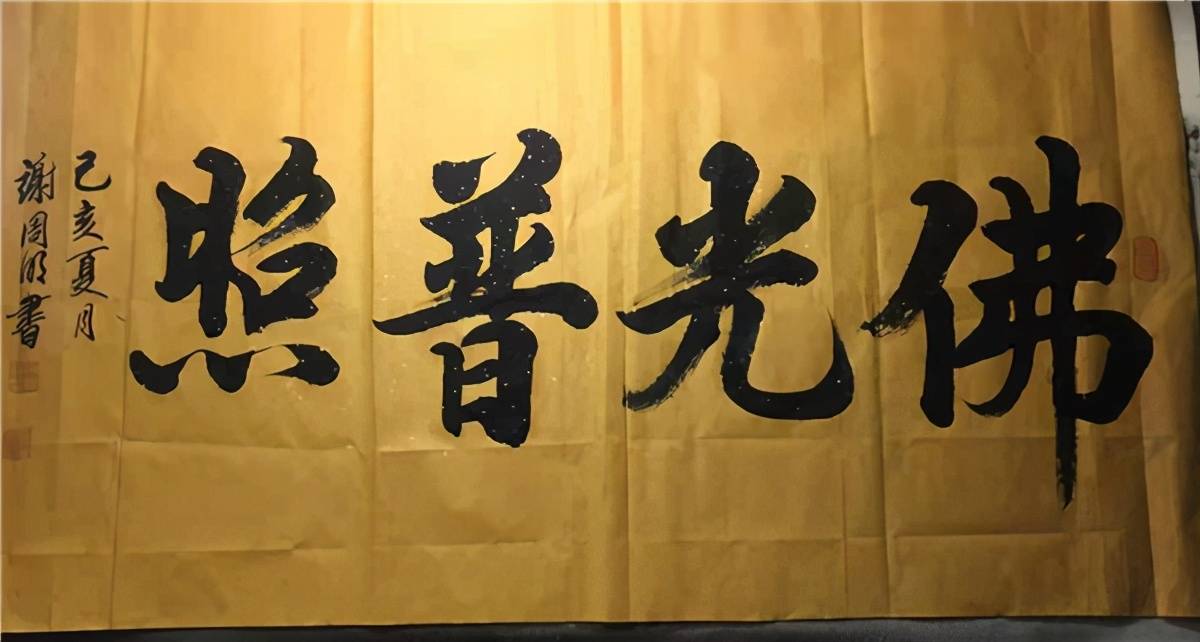 佛光普照
己亥夏月
谢周明書